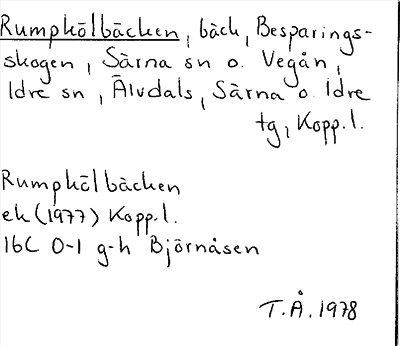 Rumphölbäcken, bäck, Besparings-
skogen, Särna sn o. Vegån,
Idre sn, Älvdals, Särna o. Idre
tg, Kopp.l.
Rumphölbäcken
ek (1977) Kopp.l.
16C 0-1 g-h Björnåsen
T.Å. 1978